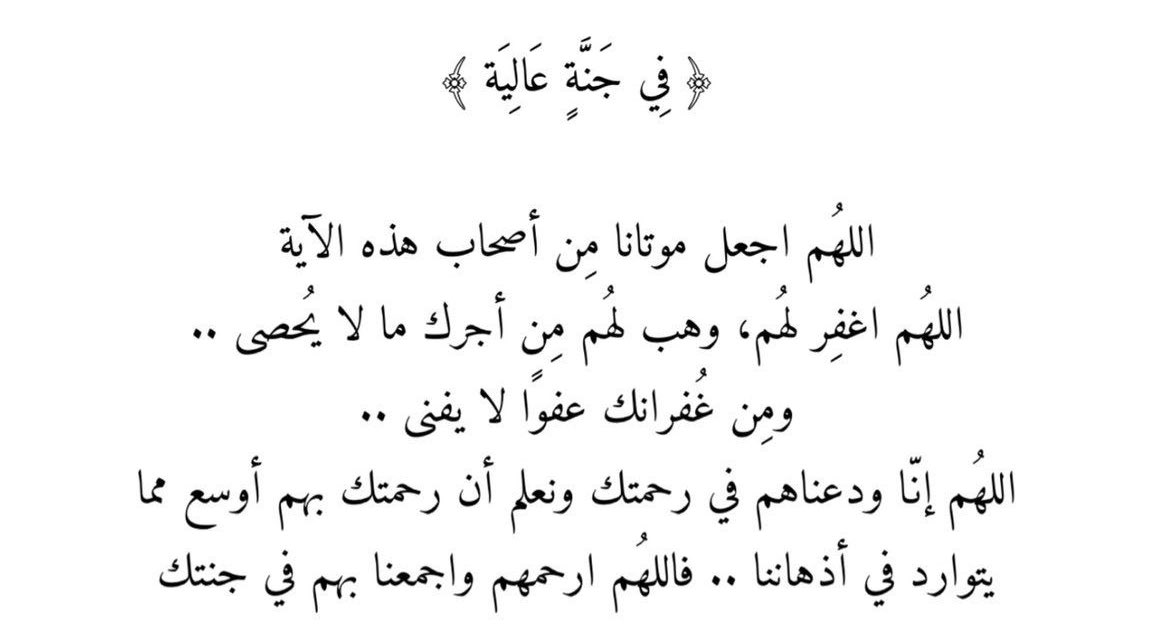 ﴿ فِي جَنَّةٍ عَالِيَة ﴾
اللهُم اجعل موتانا مِن أصحاب هذه الآية
اللهُم اغفِر لهُم، وهب لهُم مِن أجرك ما لا يُحصى ..
ومِن غُفرانك عفوًا لا يفنى ..
اللهُم إنّا ودعناهم في رحمتك ونعلم أن رحمتك بهم أوسع مما
يتوارد في أذهاننا .. فاللهُم ارحمهم واجمعنا بهم في جنتك